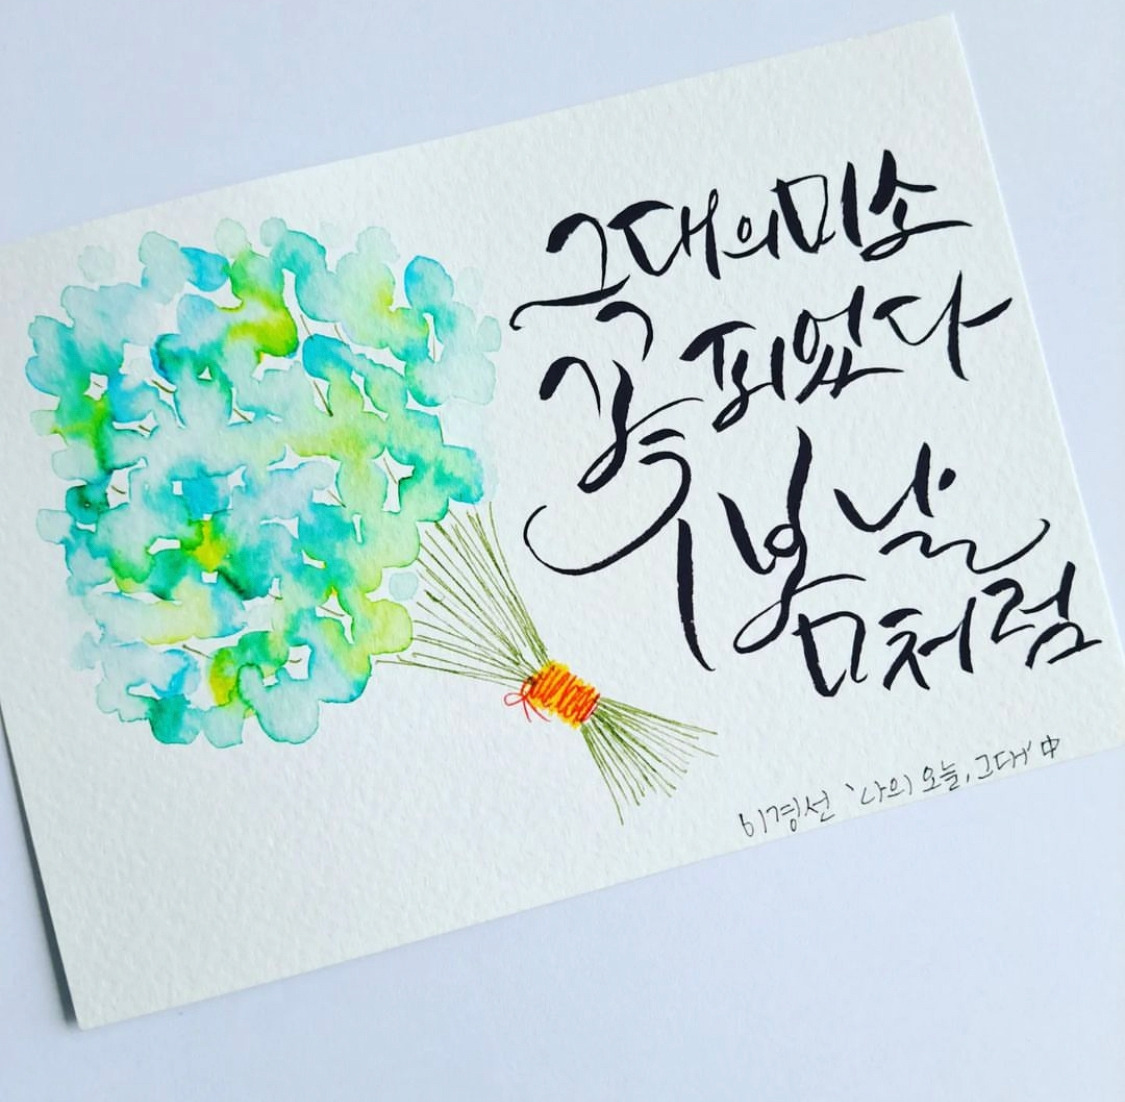 그대의 미소
피었다
봄날
처럼
이경선 '나의 오늘, 그대' 中